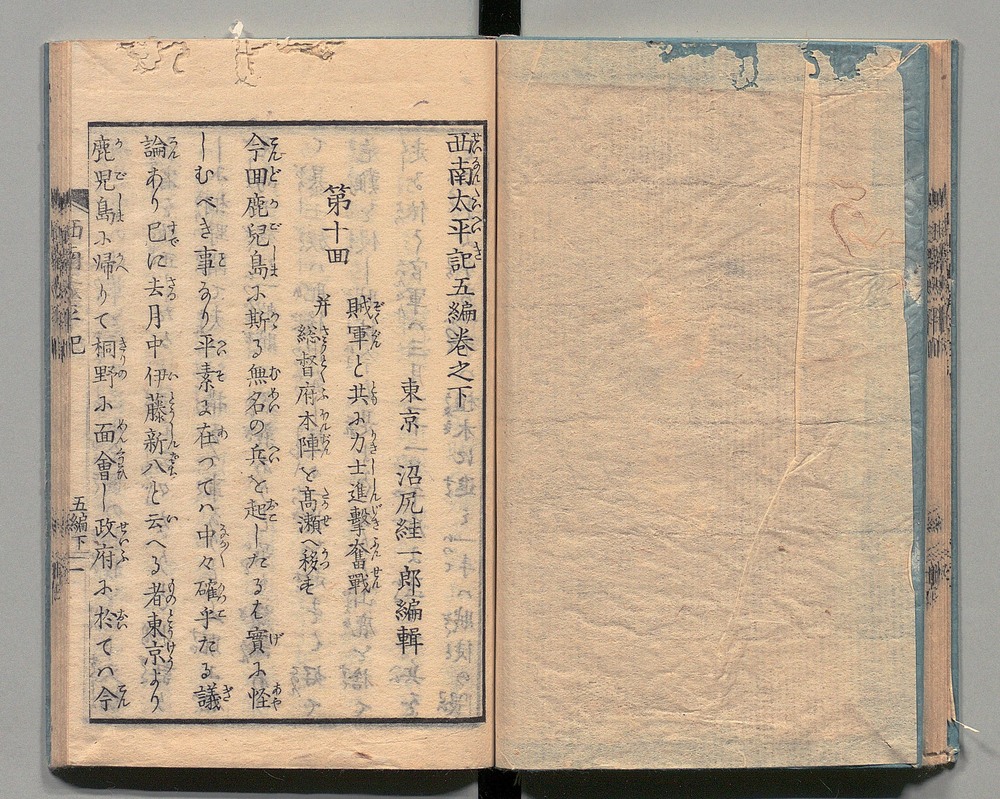 西南太平記五編巻之下
東京 沼尻絓一郎編輯
第十囬
賊軍と共に力士進擊奮戰
并 総督府本陣を髙瀬へ移す
今囬鹿兒島に斯る無名の兵を起したるは實に怪
しむべき事なり平素に在つてハ中々確乎たる議
論あり巳に去月中伊藤新八と云へる者東京より
鹿児島に帰りて桐野に面會し政府に於てハ今
西南太平記
五編下 一